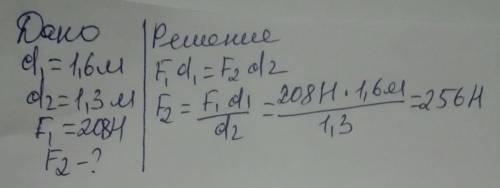 Дано
d₁ = 1,6м
d₂ = 1,3 м
F₁ = 208Н
F₂ - ?
Решение
F₁ d₁ = F₂ d₂
F₂ = F₁ d₁ / d₂ = 208Н · 1,6м / 1,3 = 256Н